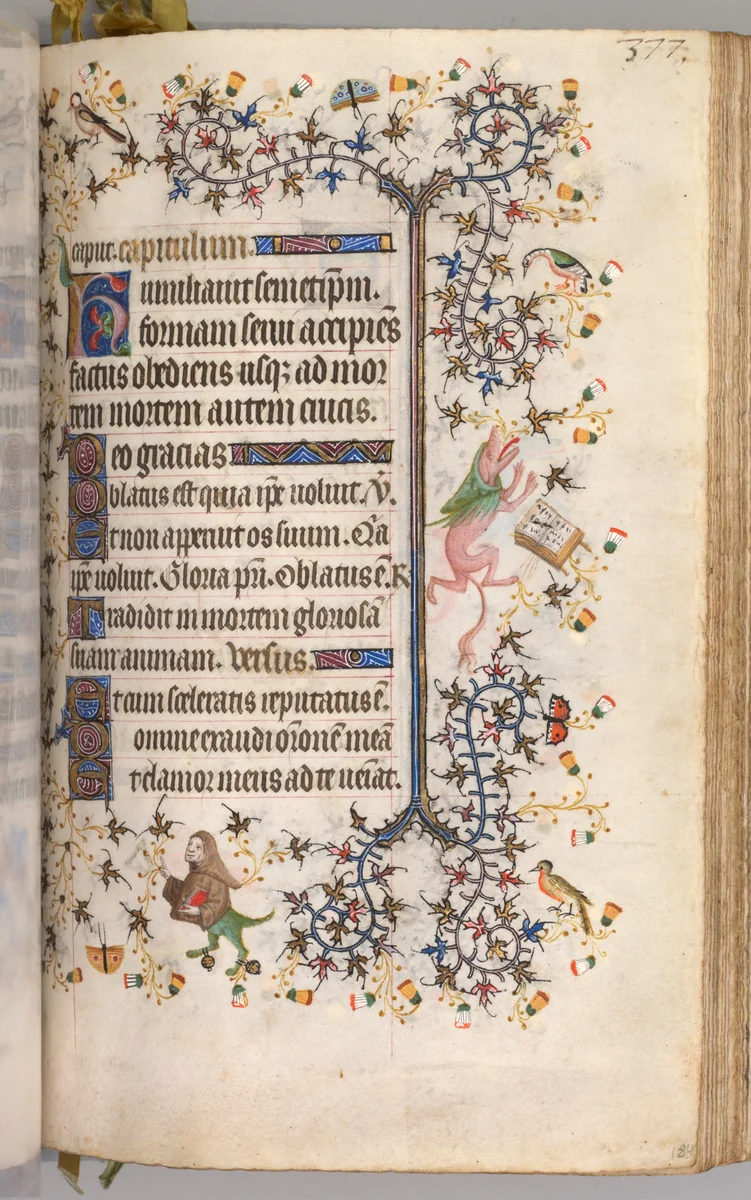 377.
caput. capitulum.
Humiliavit semetip̄m.
formam servi accipiēs
factus obediens usqꝫ ad mor
tem mortem autem crucis.
Deo gracias
Oblatus est quia ip̄e voluit. V̄.
Et non apperuit os suum. Qīa
ip̄e voluit. Gloria pr̄i. Oblatus ē. R
Tradidit in mortem gloriosā
suam animam. Versus.
Et cum sceleratis reputatus ē.
Domine exaudi or̄onē meā
Et clamor meus ad te veniat.
184